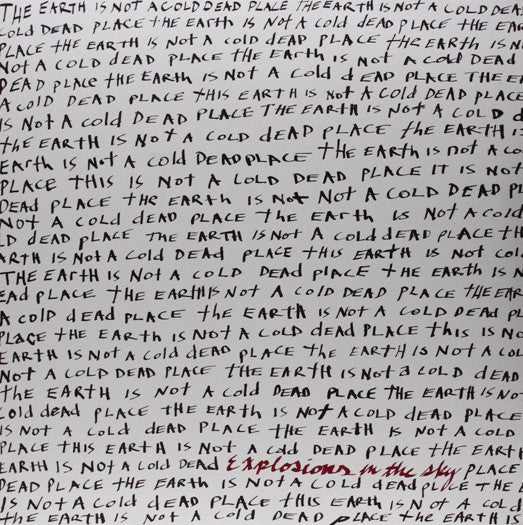 THE EARTH IS NOT A COLD DEAD PLACE THE EARTH IS NOT A COLD DEA
COLD DEAD PLACE THE EARTH IS NOT A COLD dEAD PLACE THE EAR
PLACE THE EARTH IS NOT A COLD DEAD PLACE THE EARTH IS N
NOT A COLD DEAD PLACE THE EARTH IS NOT A COLD DEAD
DEAD PLACE THE EARTH IS NOT A COLD dEAD PLACE THE EA
A COLD DEAD PLACE THIS EARTH IS NOT A COLD DEAD PLACE
IS NOT A COLD DEAD PLACE THE EARTH IS NOT A COLD D
THE EARTH IS NOT A COLD dEAD PLACE THE EARTH IS
EARTH IS NOT A COLD DEAD PLACE THE EARTH IS NOT A CO
PLACE THIS IS NOT A COLD DEAD PLACE IT IS NOT
DEAD PLACE THE EARTH IS NOT NOT A COLD DEAD PL
NOT A COLD DEAD PLACE THE EARTH IS NOT A COLD
LD dEAD PLACE THE EARTH IS NOT A COLD dEAD PLACE TH
ARTH IS NOT A COLD DEAD PLACE THIS EARTH IS NOT COL
THE EARTH IS NOT A COLD DEAD PLACE THE EARTH IS N
EAD PLACE THE EARTH IS NOT A COLD DEAD PLACE THE EAR
A COLD dEAD PLACE THE EARTH IS NOT A COLD DEAD PL
PLACE THE EARTH IS NOT A COLD DEAD PLACE THIS IS NO
EARTH IS NOT A COLD dEAD PLACE THE EARTH IS NOT A COL
NOT A COLD DEAD PLACE THE EARTH IS NOT A COLD dEAD
THE EARTH IS NOT A COLD DEAD PLACE THE EARTH IS NO
COLD dEAD PLACE THE EARTH IS NOT A COLD DEAD PLACE
IS NOT A COLD dEAD PLACE THE EARTH IS NOT A COLD
PLACE THIS EARTH IS NOT A COLD DEAD PLACE THE EARTH
EARTH IS NOT A COLD DEAD Explosions in the sky PLACE
DEAD PLACE THE EARTH IS NOT A COLD dEAD PLACE THE EA
IS NOT A COLD dEAD PLACE THIS EARTH IS NOT A COLD
THE EARTH IS NOT A COLD DEAD PLACE THE EARTH IS